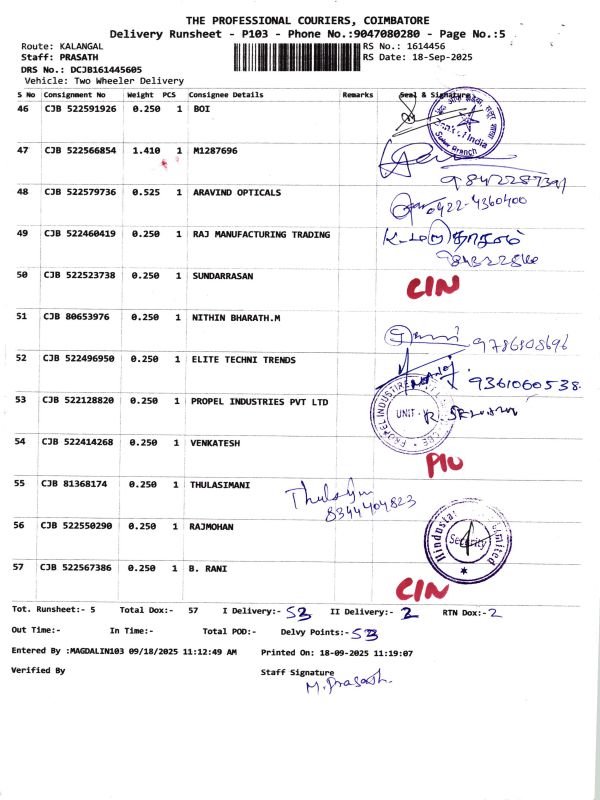 THE PROFESSIONAL COURIERS, COIMBATORE
Delivery Runsheet - P103 - Phone No.:9047080280 - Page No.:5
Route: KALANGAL RS No.: 1614456
Staff: PRASATH RS Date: 18-Sep-2025
DRS No.: DCJB161445605
Vehicle: Two Wheeler Delivery
S No Consignment No Weight PCS Consignee Details Remarks Seal & Signature
46 CJB 522591926 0.250 1 BOI
Sulur Branch
47 CJB 522566854 1.410 1 M1287696
48 CJB 522579736 0.525 1 ARAVIND OPTICALS
0422-4360400
49 CJB 522460419 0.250 1 RAJ MANUFACTURING TRADING
50 CJB 522523738 0.250 1 SUNDARRASAN CIN
51 CJB 80653976 0.250 1 NITHIN BHARATH.M
9786108696
52 CJB 522496950 0.250 1 ELITE TECHNI TRENDS
9361060538
53 CJB 522128820 0.250 1 PROPEL INDUSTRIES PVT LTD
UNIT
54 CJB 522414268 0.250 1 VENKATESH
55 CJB 81368174 0.250 1 THULASIMANI
8344404823
56 CJB 522550290 0.250 1 RAJMOHAN
Security
57 CJB 522567386 0.250 1 B. RANI CIN
Tot. Runsheet:- 5 Total Dox:- 57 I Delivery:- 53 II Delivery:- 2 RTN Dox:- 2
Out Time:- In Time:- Total POD:- Delvy Points:- 53
Entered By :MAGDALIN103 09/18/2025 11:12:49 AM Printed On: 18-09-2025 11:19:07
Verified By Staff Signature
M. Prasath.